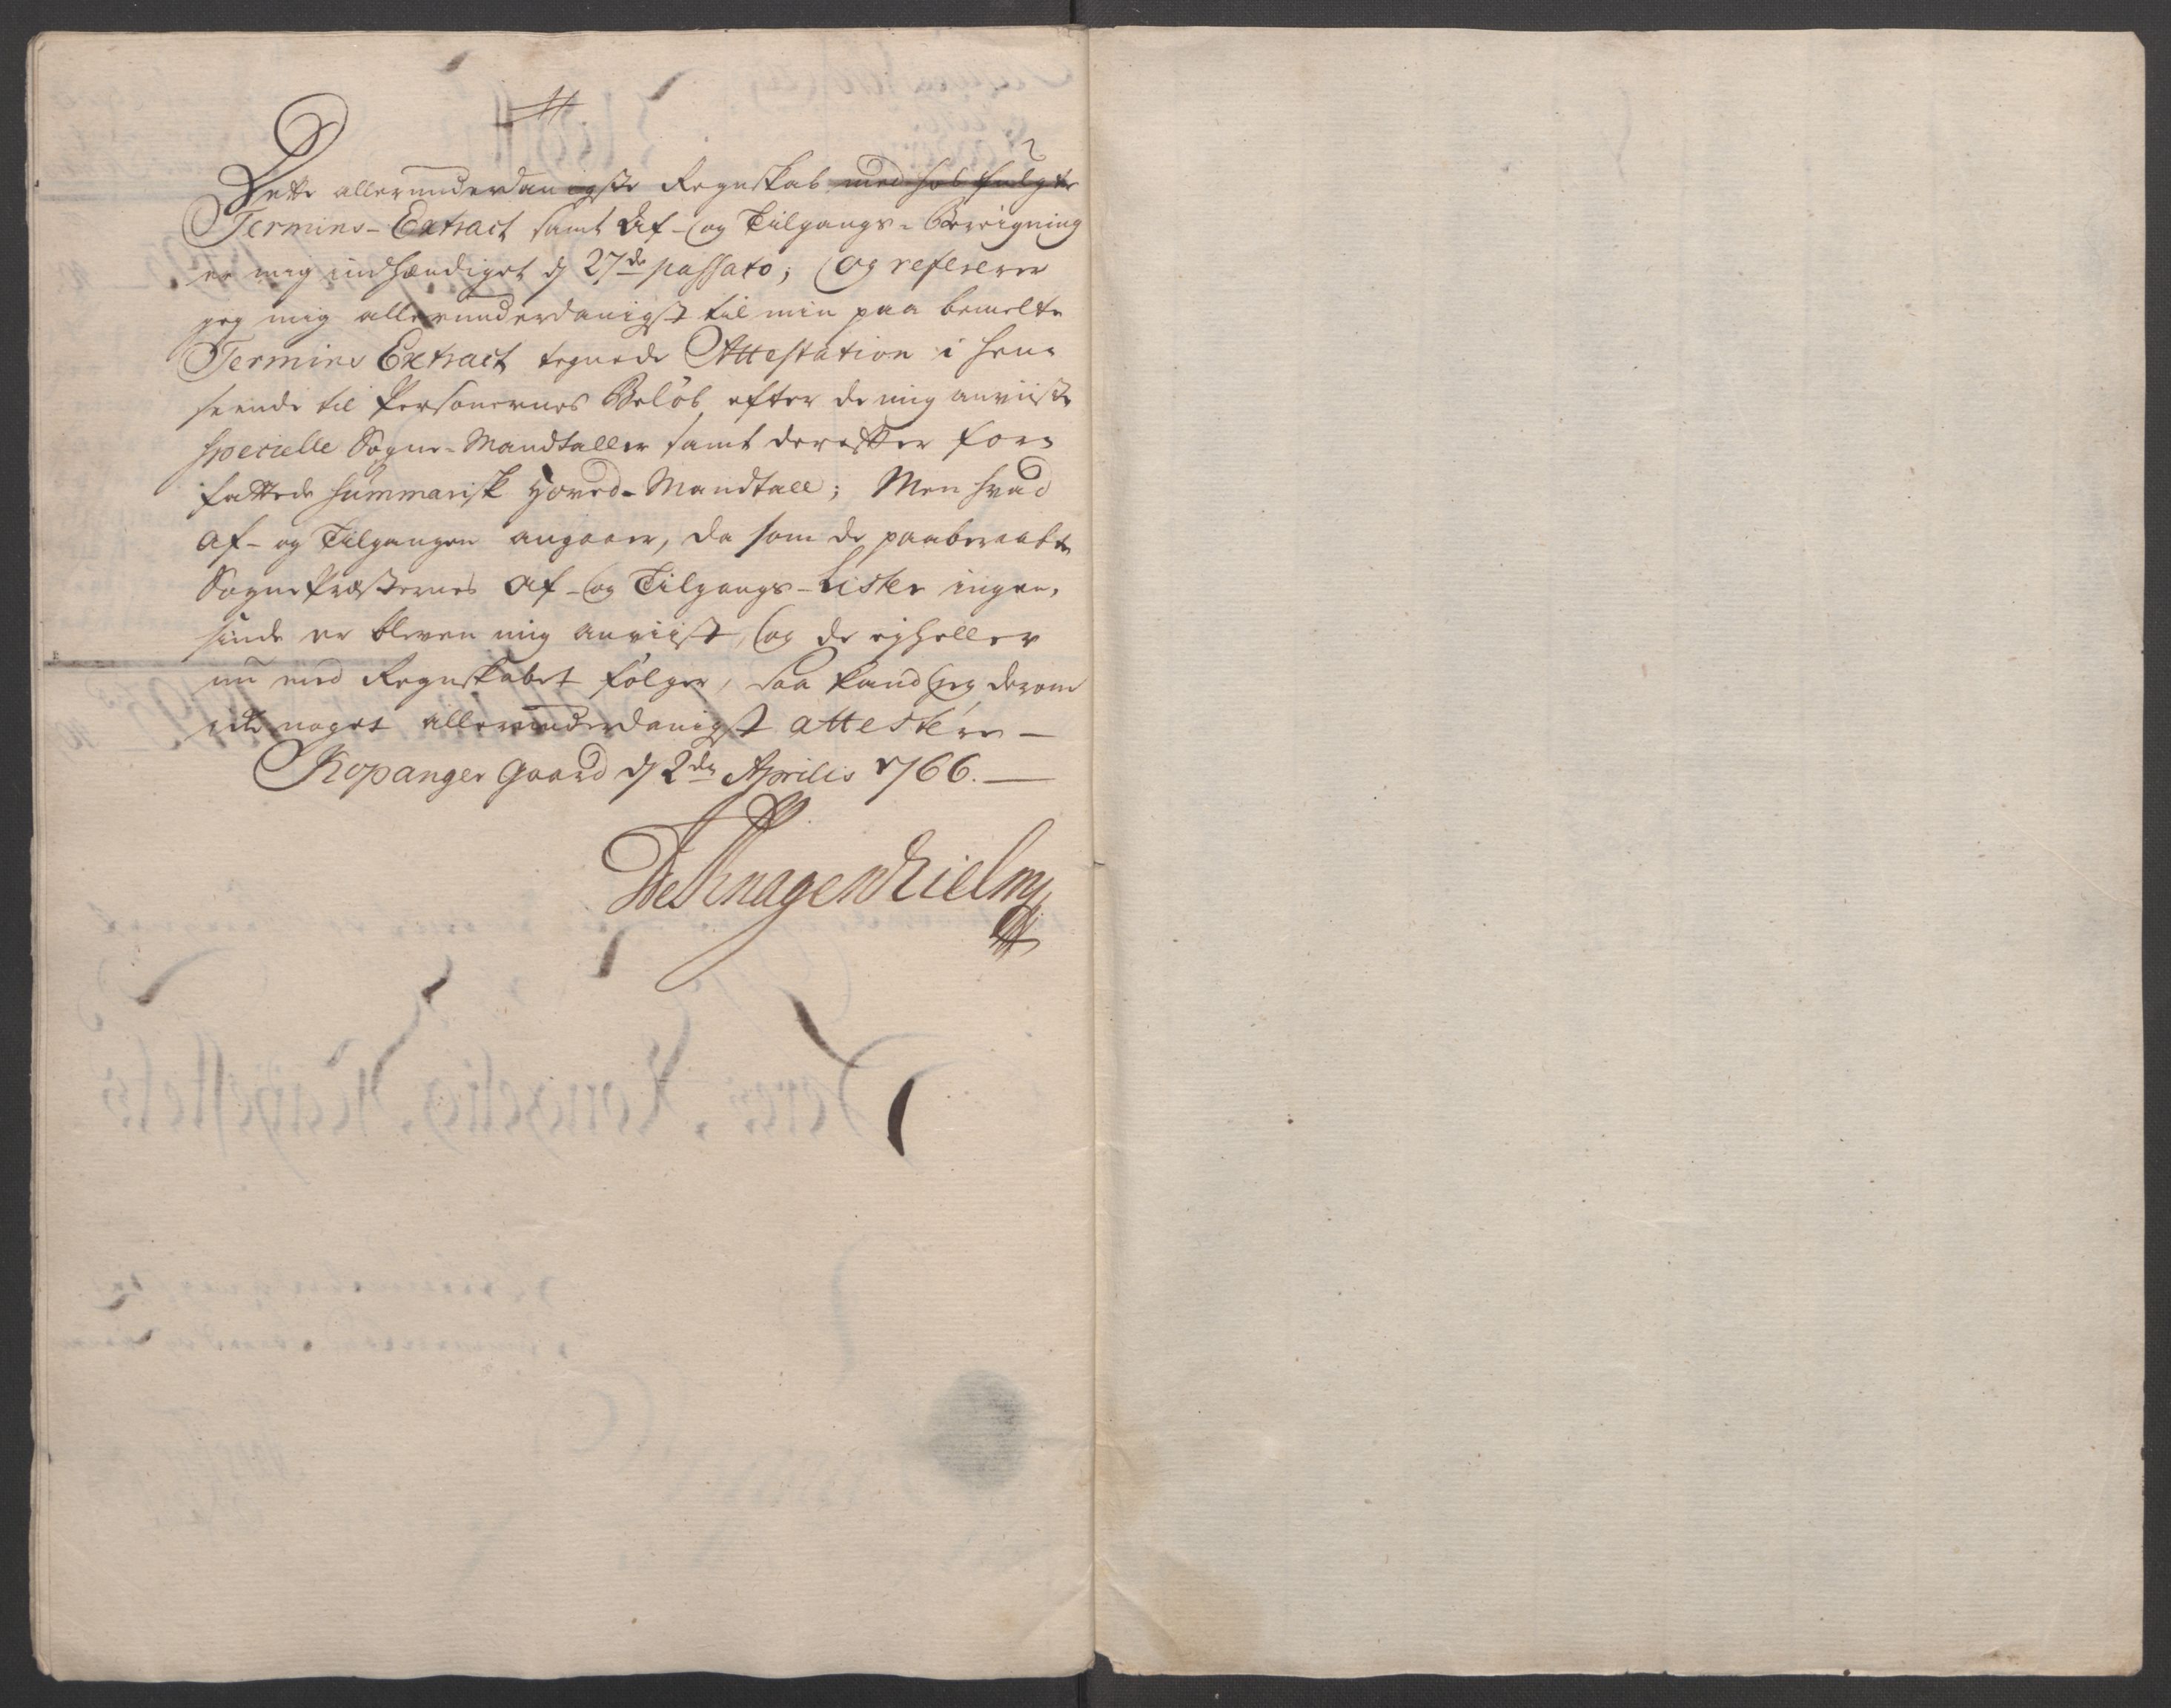 Dette allerunderdanigste Regnskab med hos fulgte
Termins-Extract samt Af- og Tilgangs-Beregning
er mig indhændiget d 27de passato; og referer
jeg mig allerunderdanigst til min paa bemelte
Termins Extract tegnede Attestation i hen-
seende til Personernes Beløb efter de mig anviiste
specielle Sogne-Mandtaller samt derefter for-
fattede summarisk Hoved-Mandtall; Men hvad
Af- og Tilgangen angaaer, da som de paaberaabte
SognePræsternes Af- og Tilgangs-Lister ingen-
sinde er bleven mig anviist, og de ejheller
nu med Regnskabet følger, saa kand jeg derom
icke noget allerunderdanigst attestere -
Kopanger Gaard d 2den Aprilis 1766. -